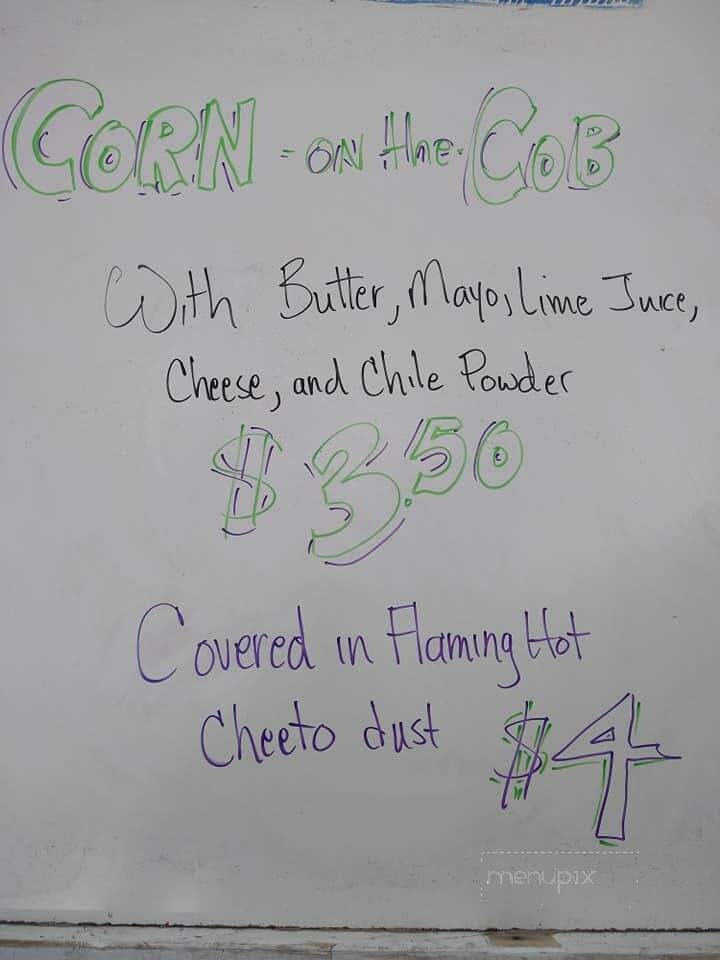 CORN - ON the COB
With Butter, Mayo, Lime Juice,
Cheese, and Chile Powder
$3.50
Covered in Flaming Hot
Cheeto dust $4
menupix